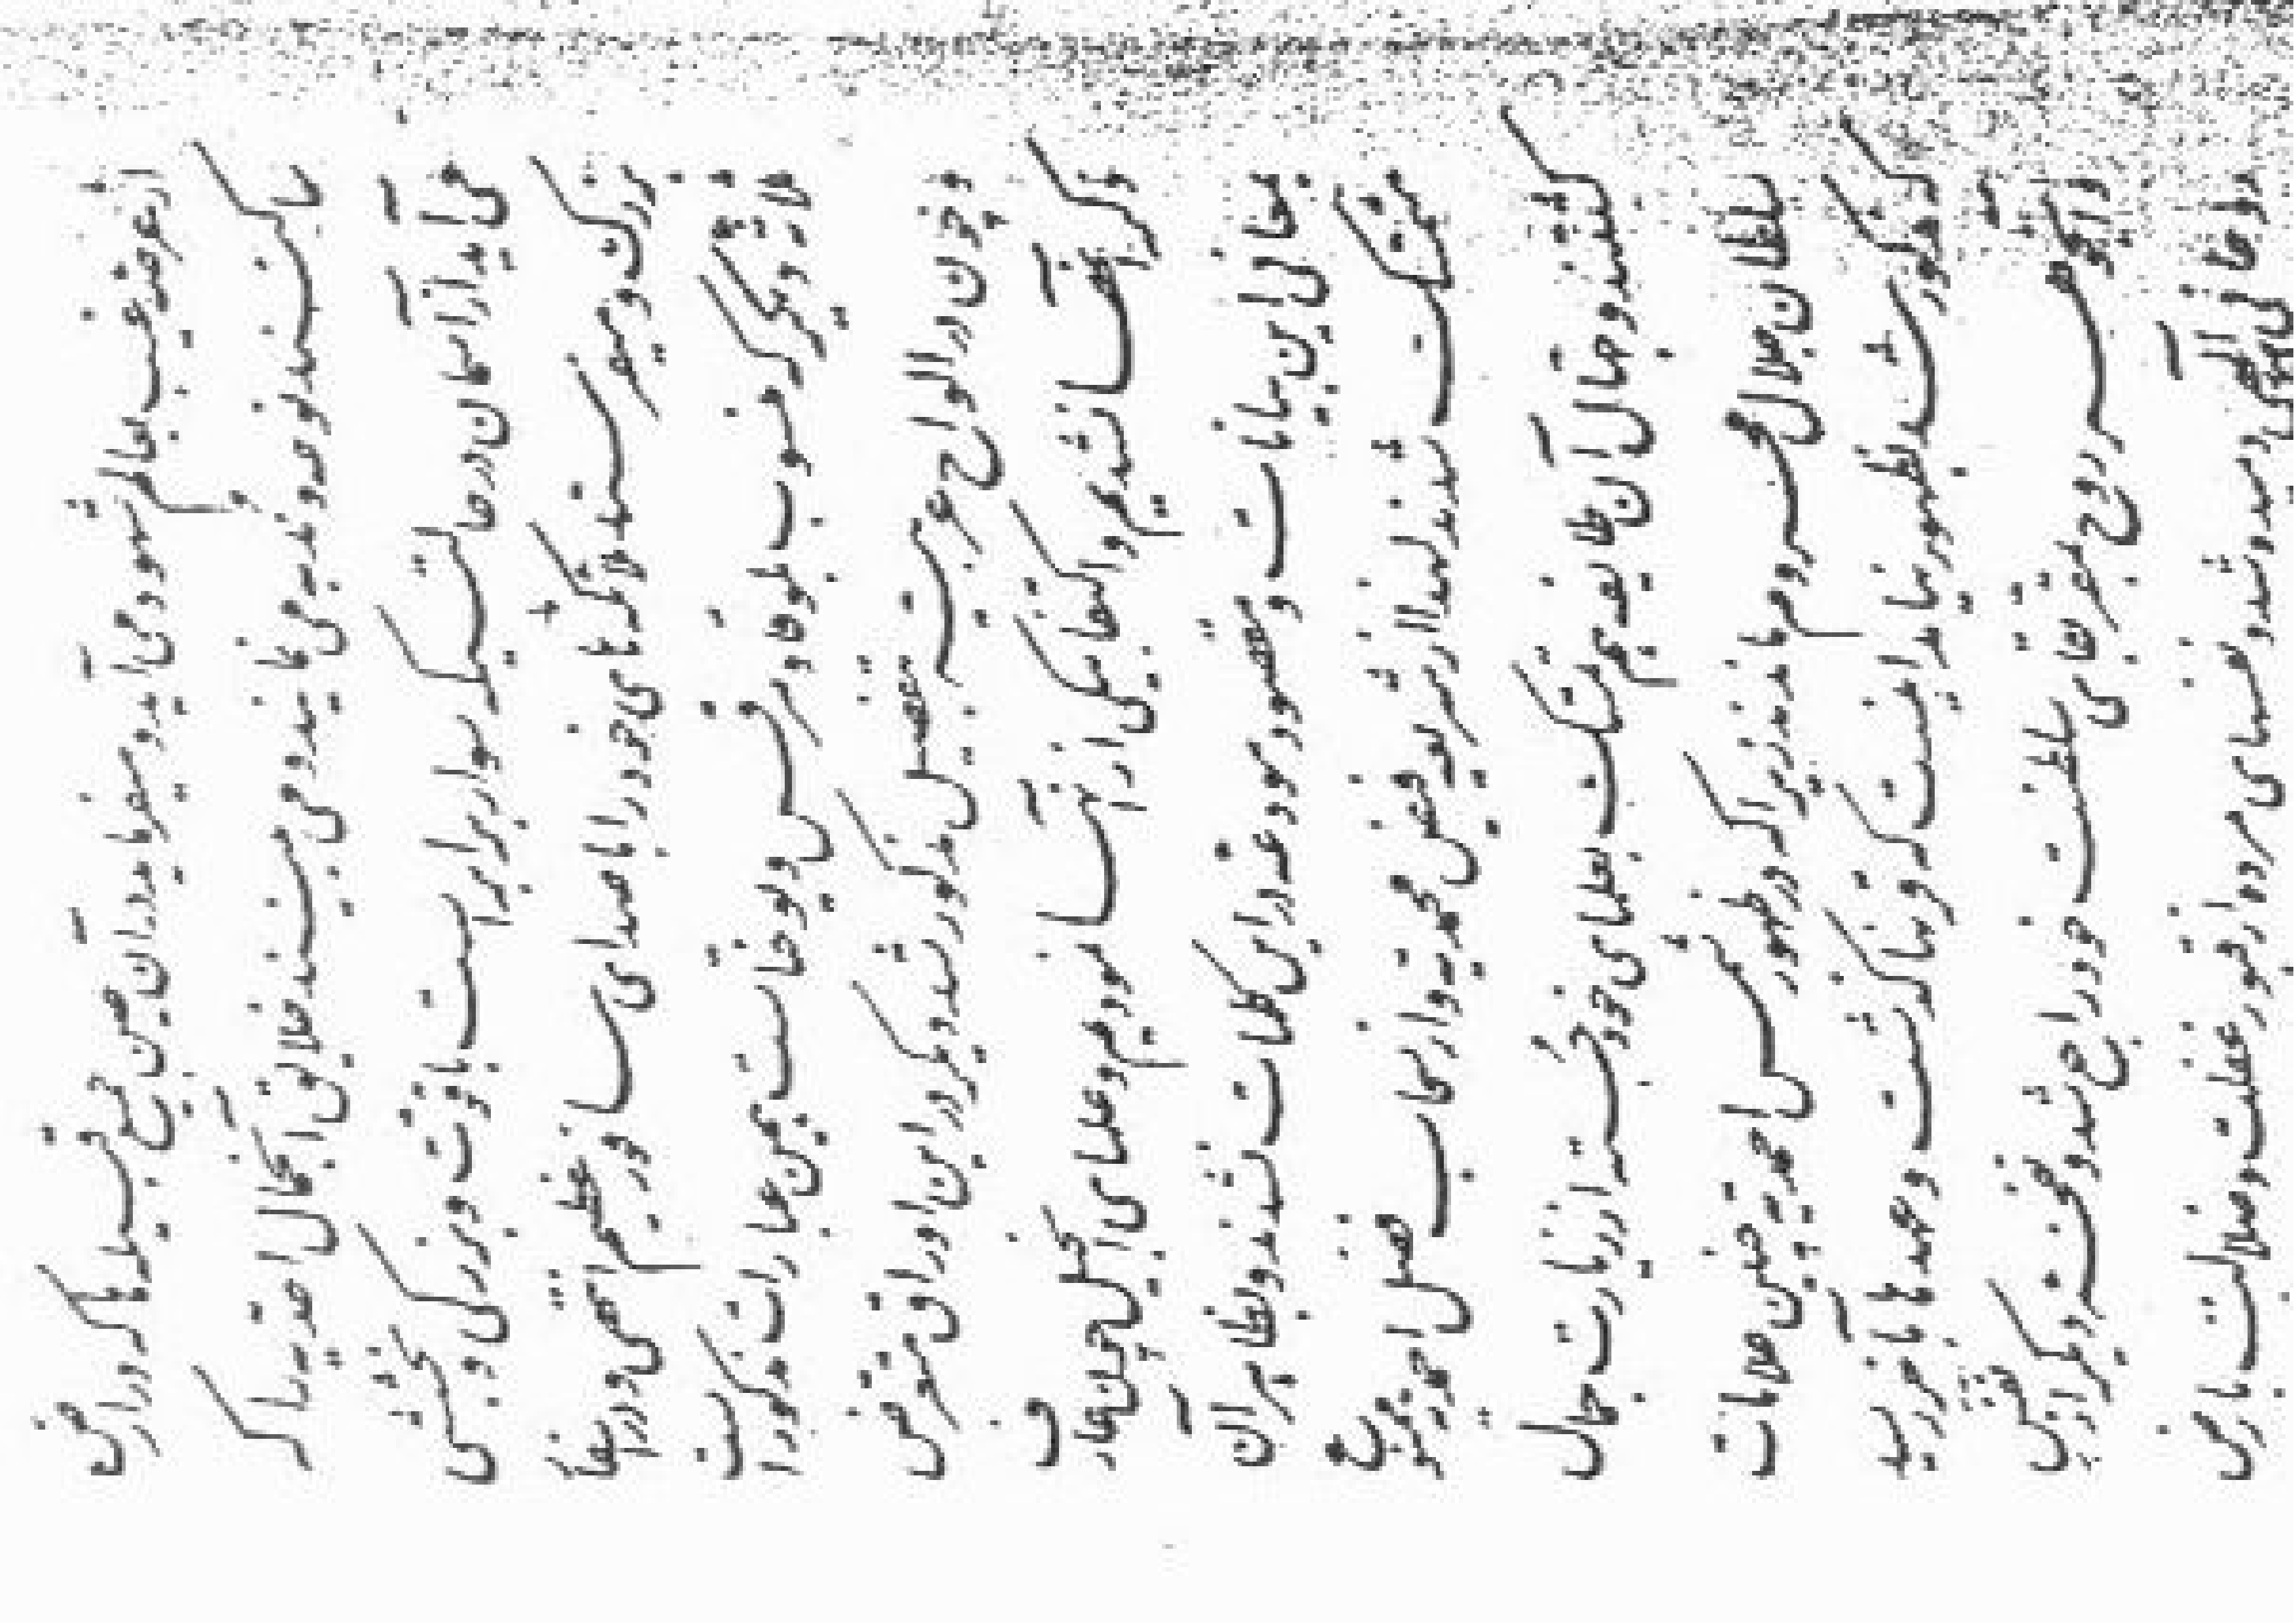 از عرصه غیب بعالم شهود می آید و میفرماید در آن حین جمیع قبیله ها که در ارض
ساکنند نوحه و ندبه می نمایند و می بینند خلایق آن جمال احدیه را که
می آید از آسمان در حالتیکه سوار بر ابر است با قوت و بزرگی و بخششی
بزرگ و میفرستد ملائکه های خود را با صدای سافور عظیم انتهی و در اسفار
ثلاثه دیگر که منسوب بلوقا و مرقس و یوحنا است همین عبارات مذکور است
و چون در الواح عربیه بتفصیل مذکور شد دیگر در این اوراق متعرض
ذکر آنها نشدیم و اکتفا بیکی از آنها نمودیم و علمای انجیل چون عارف
بمعانی این بیانات و مقصود مودعه در این کلمات نشدند و بظاهر آن
متمسک شدند لهذا از شریعه فیض محمدیه و از سحاب فضل احمدیه ممنوع
گشتند و جهال آن طایفه هم تمسک بعلمای خود جسته از زیارت جمال
سلطان جلال محروم ماندند زیرا که در ظهور شمس احمدیه چنین علامات
که مذکور شد بظهور نیامد اینست که قرنها گذشت و عهدها بآخر رسید
و آن جوهر روح بمقر بقای سلطنت خود راجع شد و نفخه دیگر از نفس
روحانی الهی دمیده شد و نفسهای مرده از قبور غفلت و ضلالت بارض